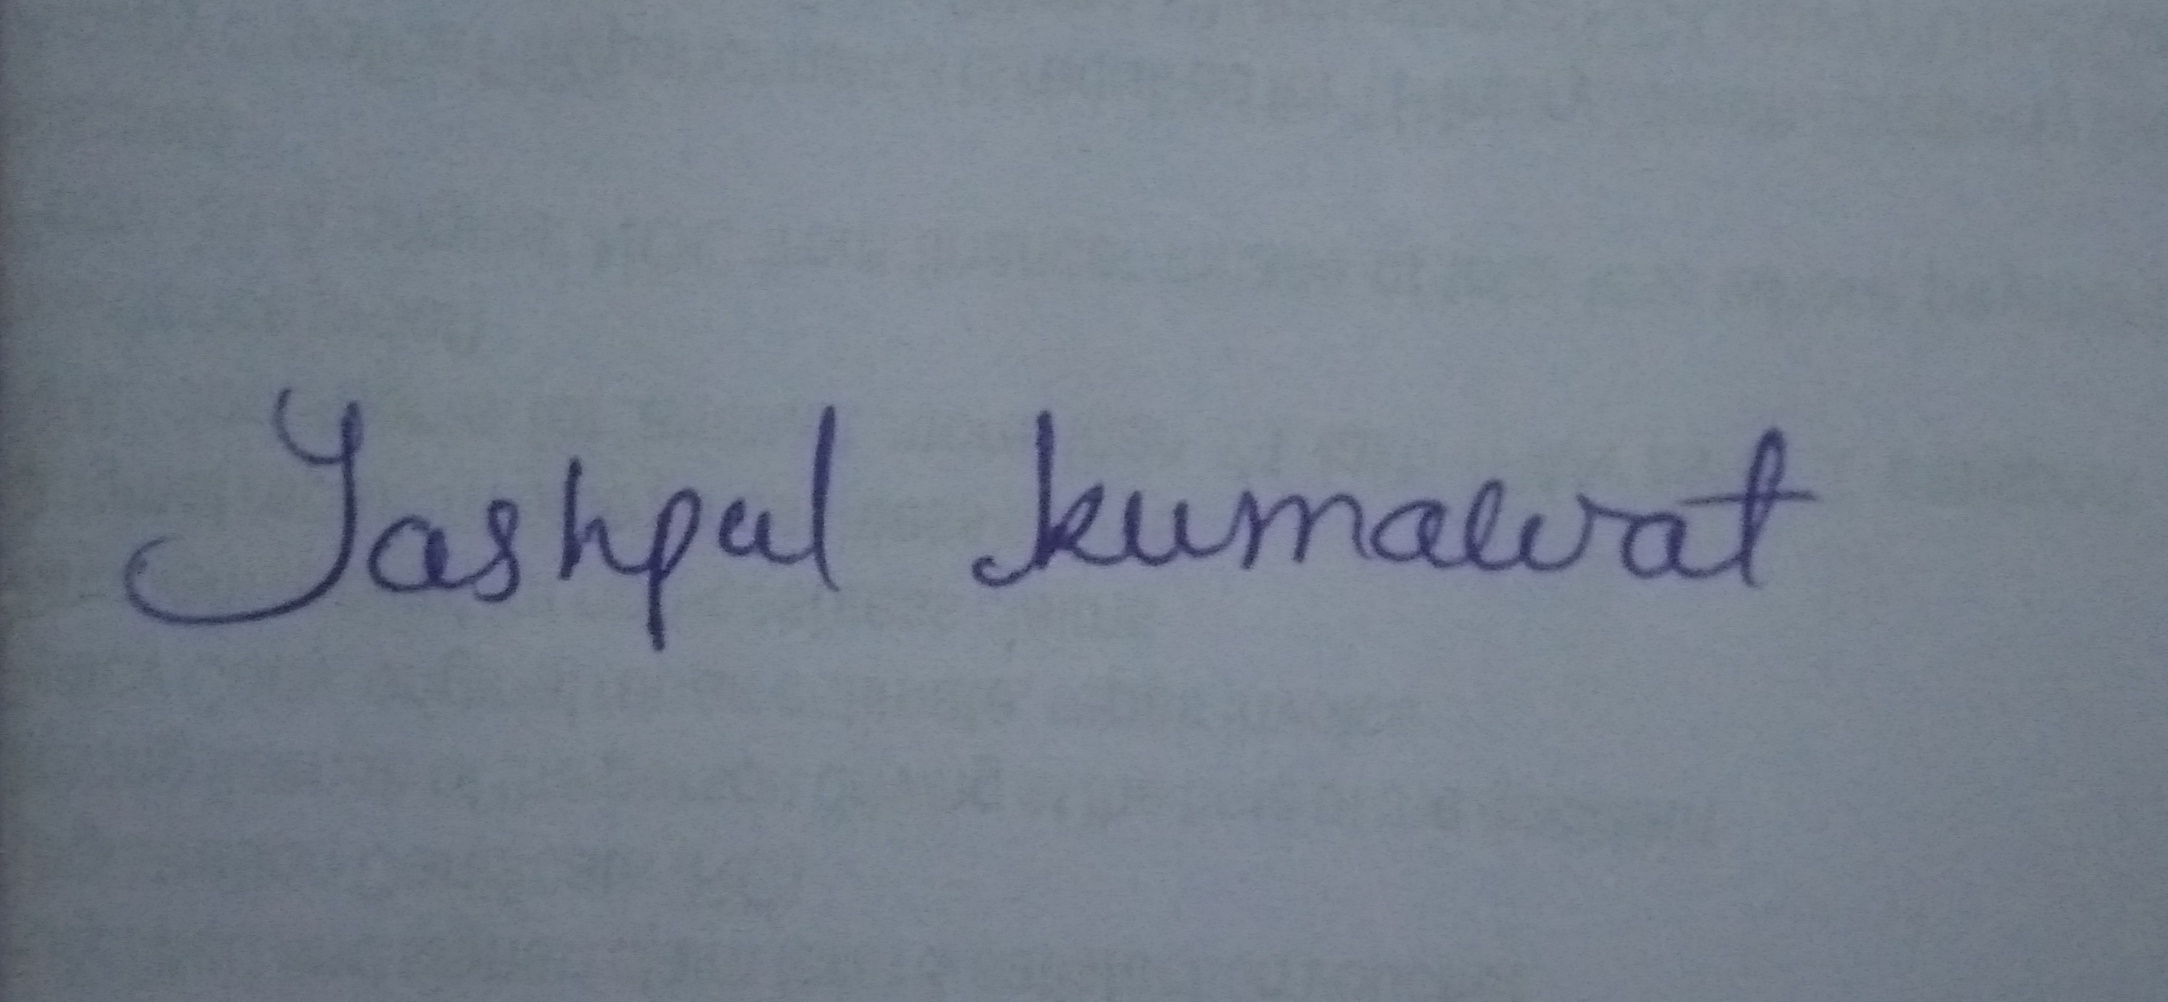 Yashpal kumawat